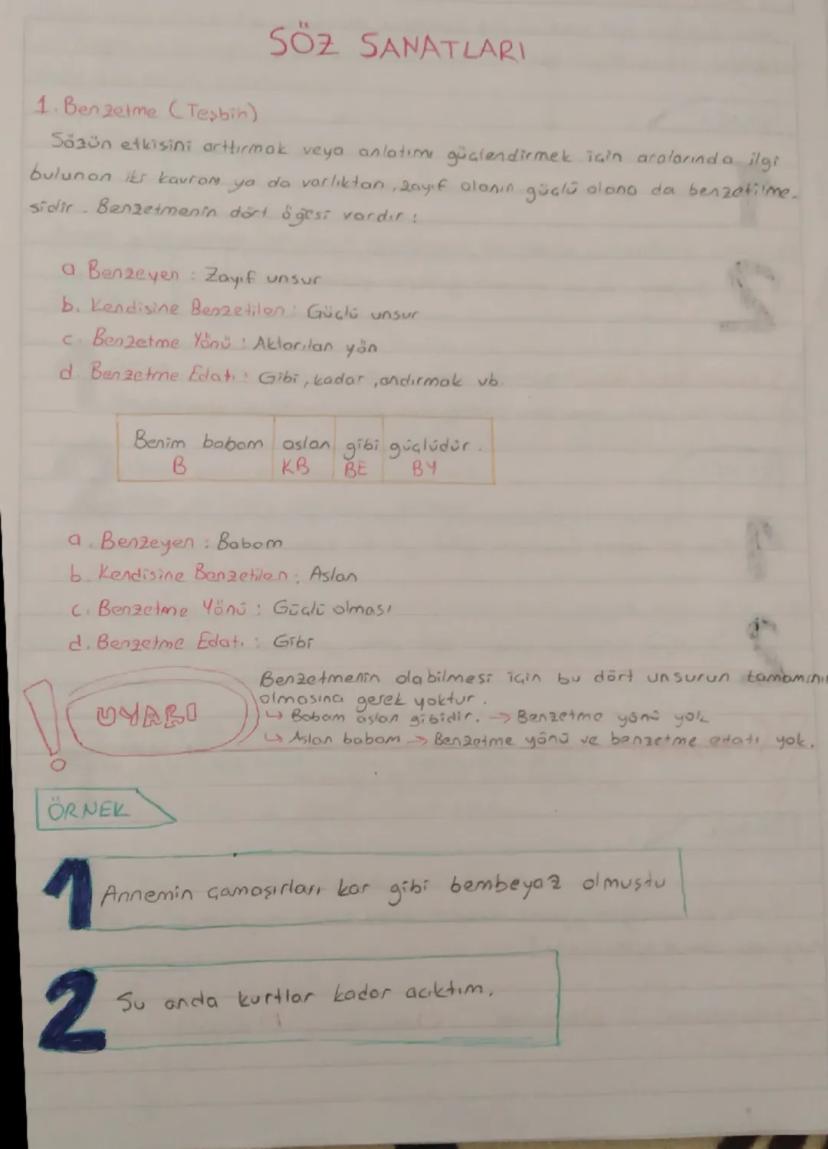 SÖZ SANATLARI
1. Benzetme (Teşbih)
Sözün etkisini arttırmak veya anlatımı güçlendirmek için aralarında ilgi
bulunan iki kavram ya da varlıktan, zayıf olanın güçlü olana da benzetilme-
sidir. Benzetmenin dört öğesi vardır:
a Benzeyen : Zayıf unsur
b. Kendisine Benzetilen : Güçlü unsur
c. Benzetme Yönü : Aktarılan yön
d. Benzetme Edatı : Gibi, kadar, andırmak vb.
Benim babam aslan gibi güçlüdür.
B KB BE BY
a. Benzeyen : Babam
b. Kendisine Benzetilen : Aslan
c. Benzetme Yönü : Güçlü olması
d. Benzetme Edatı : Gibi
! UYARI
Benzetmenin olabilmesi için bu dört unsurun tamamının
olmasına gerek yoktur.
↳ Babam aslan gibidir. → Benzetme yönü yok
↳ Aslan babam → Benzetme yönü ve benzetme edatı yok.
ÖRNEK
1 Annemin çamaşırları kar gibi bembeyaz olmuştu
2 Şu anda kurtlar kadar acıktım.